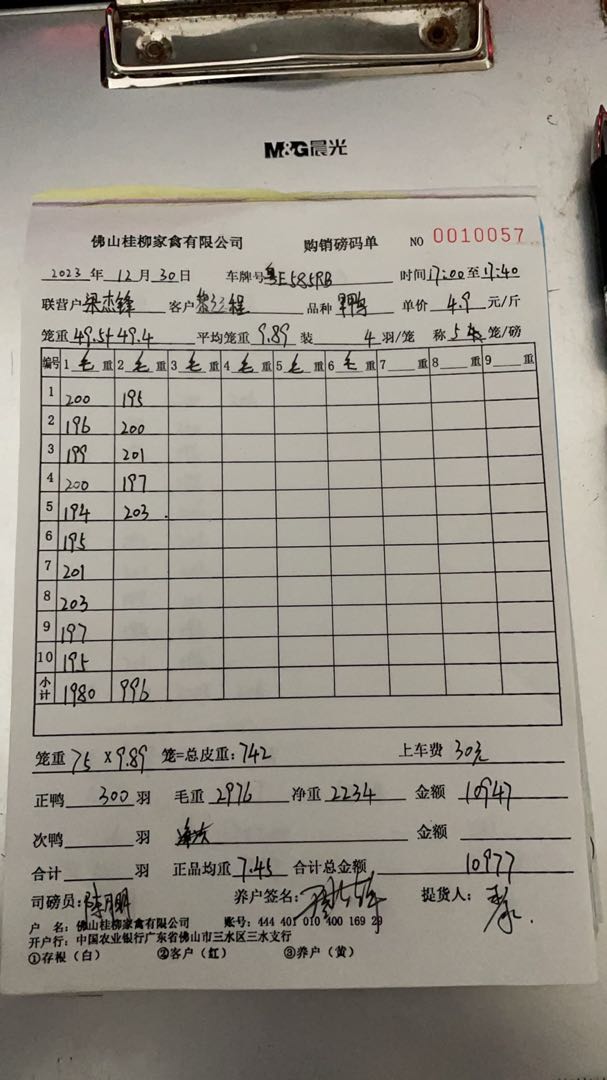 M&G晨光
佛山桂柳家禽有限公司 购销磅码单 NO 0010057
2023 年 12 月 30 日 车牌号 粤E585RB 时间 17:00 至 17:40
联营户 梁杰锋 客户 程 品种 单价 4.9 元/斤
笼重 49.5+49.4 平均笼重 9.89 装 4 羽/笼 称 5 笼/磅
编号 1 毛 重 2 毛 重 3 毛 重 4 毛 重 5 毛 重 6 毛 重 7 重 8 重 9 重
1 200 195
2 196 200
3 199 201
4 200 197
5 194 203
6 195
7 201
8 203
9 197
10 195
小计 1980 996
笼重 75 X 9.89 笼=总皮重: 742 上车费 30元
正鸭 300 羽 毛重 2976 净重 2234 金额 10947
次鸭 羽 金额
合计 羽 正品均重 7.45 合计总金额 10977
司磅员: 养户签名: 提货人:
户 名: 佛山桂柳家禽有限公司 账号: 444 401 010 400 169 29
开户行: 中国农业银行广东省佛山市三水区三水支行
①存根(白) ②客户(红) ③养户(黄)